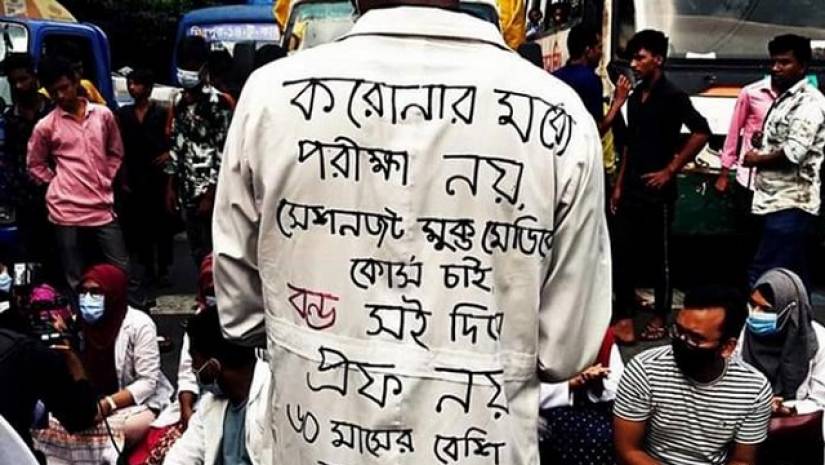 করোনার মধ্যে
পরীক্ষা নয়,
সেশনজট মুক্ত
কোর্স চাই
বন্ড সই দিয়ে
প্রফ নয়
৬০ মাসের বেশি